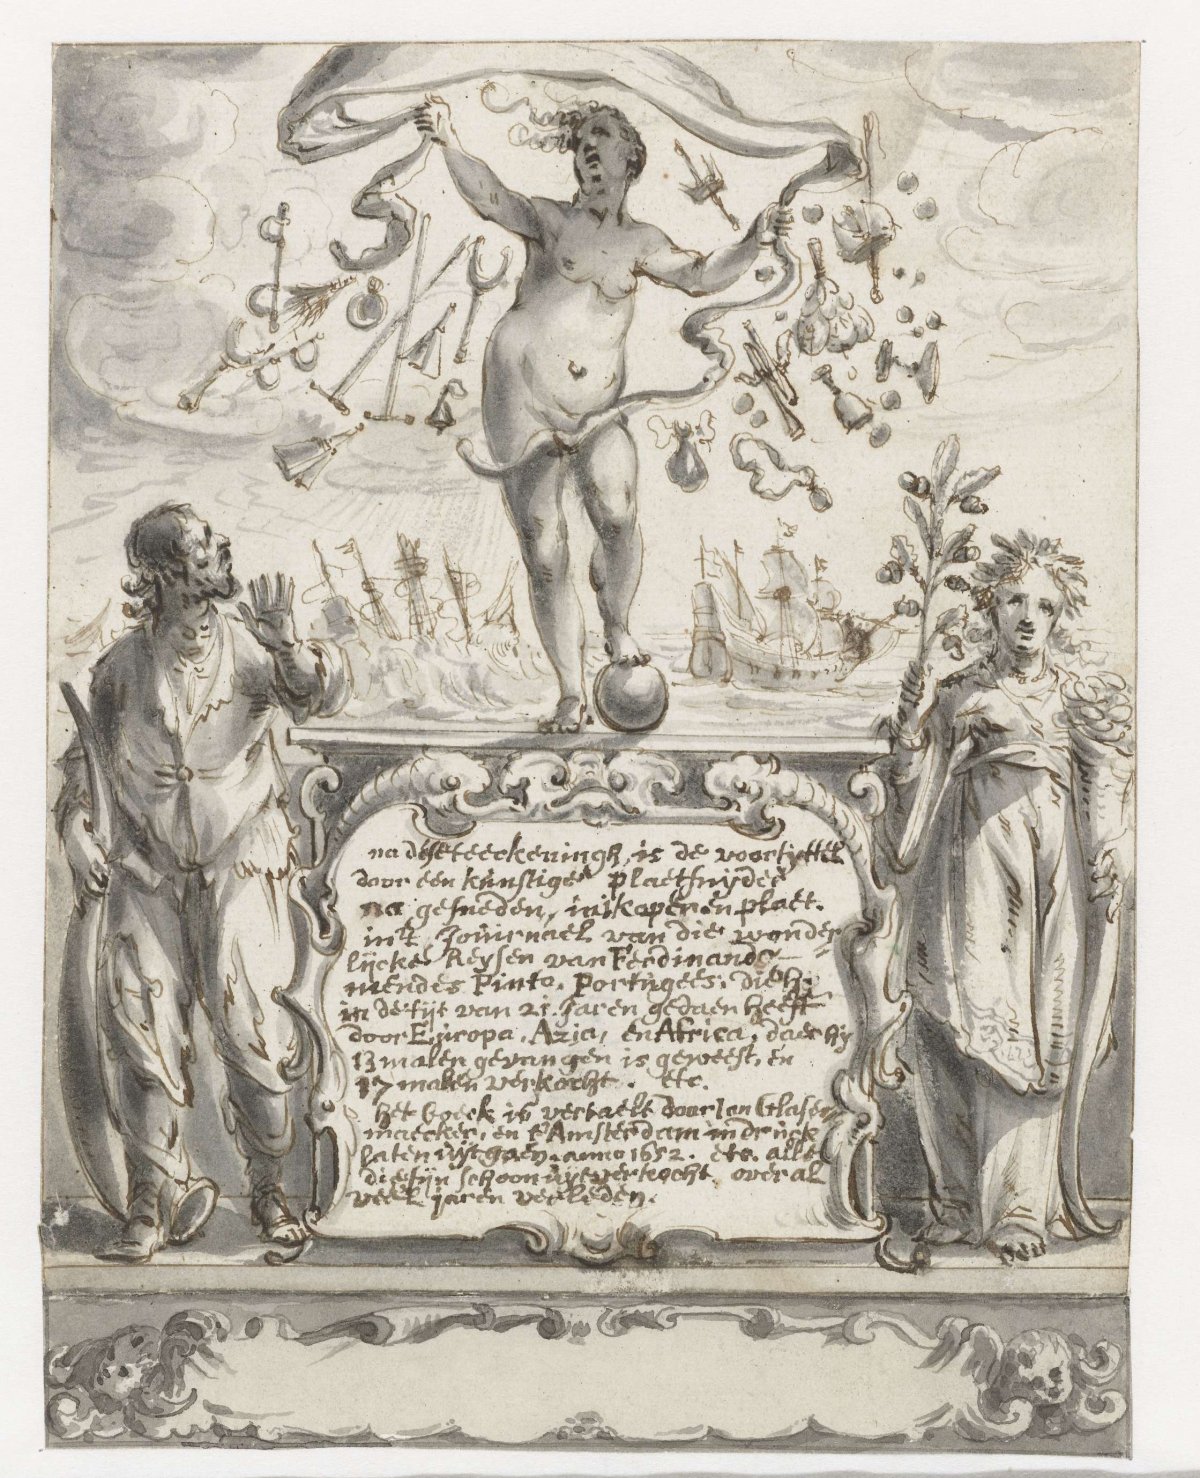 na dese teeckeningh, is de voortyttel
door een kunstige plaetsnyder
na gesneden, in koperen plaet.
int Journael van die wonder
lijcke Reysen van Ferdinando
mendes Pinto, Portugees, die hy
in de tijt van 21. Jaren gedaen heeft
door Europa, Azia, en Africa, daer hy
13 malen gevangen is geweest, en
17 malen verkocht. etc.
het boeck is vertaelt door Jan Glase
maecker, en t'Amsterdam in druck
laten uijtgaen. anno 1652. etc. alle
die sijn schoon uijt verkocht over al
veel jaren verleden.